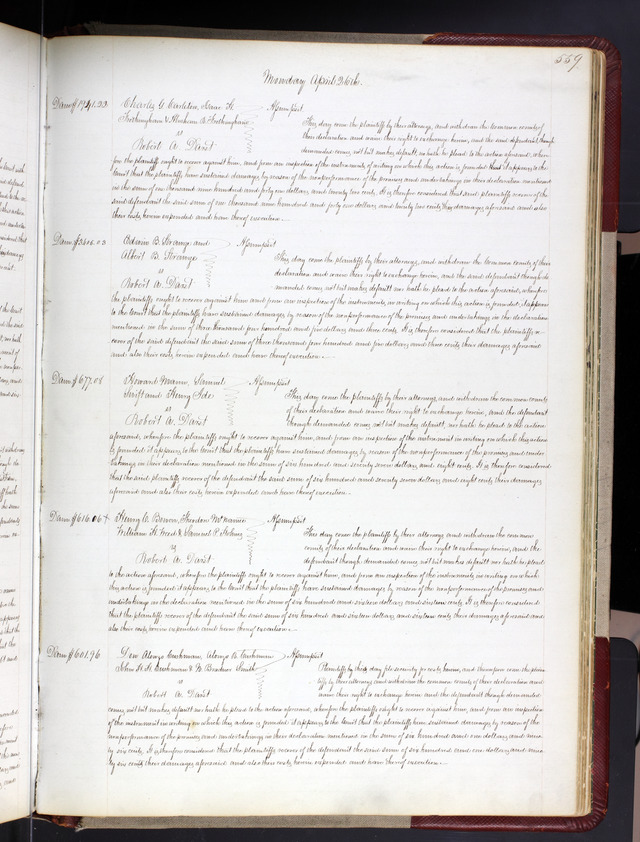 559
Monday April 26th.
Dam $1941.22 Charles G. Carleton, Isaac H. Assumpsit
Frothingham & Abraham B. Frothingham
vs
Robert A. Davst
This day come the plaintiffs by their attorneys, and withdraw the common counts of
their declaration and waive their right to exchange herein, and the said defendant, though
demanded comes, not but makes default, nor hath he plead to the action aforesaid, where
fore the plaintiffs ought to recover against him, and from an inspection of the instruments of writing on which this action is founded it appears to the
Court that the plaintiffs have sustained damages, by reason of the nonperformance of the promises and undertakings in the declaration mentioned
in the sum of one thousand nine hundred and forty one dollars, and twenty two cents. It is therefore considered that said plaintiffs recover of the
said defendant the said sum of one thousand nine hundred and forty one dollars and twenty two cents, their damages aforesaid and also
their costs, herein expended and have thereof execution.
Dam $3405.03 Edwin B. Strange and Assumpsit
Albert B. Strange
vs
Robert A. Davst
This day come the plaintiffs by their attorneys, and withdraw the common counts of their
declaration and waive their right to exchange herein, and the said defendant though de
manded comes not but makes default nor hath he plead to the action aforesaid, wherefore
the plaintiffs ought to recover against him and from an inspection of the instruments, in writing on which this action is founded, it appears
to the Court that the plaintiffs have sustained damages, by reason of the nonperformance of the promises and undertakings in the declaration
mentioned in the sum of three thousand four hundred and five dollars and three cents. It is, therefore considered that the plaintiffs re
cover of the said defendant the said sum of three thousand four hundred and five dollars, and three cents, their damages, aforesaid
and also their costs, herein expended and have thereof execution.
Dam $677.08 Howard Mann, Samuel Assumpsit
Swift and Henry Ide
vs
Robert A. Davst
This day come the plaintiffs by their attorneys, and withdraw the common counts
of their declaration and waive their right to exchange herein, and the defendant
though demanded comes, not but makes default, nor hath he plead to the action
aforesaid, wherefore the plaintiffs ought to recover against him, and from an inspection of the instrument in writing on which this action
is founded it appears, to the Court that the plaintiffs have sustained damages, by reason of the nonperformance of the promises, and under
takings, in their declaration mentioned in the sum of six hundred and seventy seven dollars, and eight cents. It is, therefore considered
that the said plaintiffs recover of the defendant the said sum of six hundred and seventy seven dollars, and eight cents, their damages
aforesaid and also their costs herein expended and have thereof execution.
Dam $616.06 Henry C. Bowen, Theodore McNamee Assumpsit
William H. &amp; Samuel P.
vs
Robert A. Davst
This day come the plaintiffs by their attorneys and withdraw the common
counts of their declaration and waive their right to exchange herein, and the
defendant though demanded comes, not but makes default nor hath he plead
to the action aforesaid, wherefore the plaintiffs ought to recover against him, and from an inspection of the instrument, in writing on which
this action is founded it appears, to the Court that the plaintiffs, have sustained damages, by reason of the nonperformance of the promises, and
undertakings in the declaration mentioned in the sum of six hundred and sixteen dollars and sixteen cents. It is, therefore considered
that the plaintiffs recover of the defendant the said sum of six hundred and sixteen dollars, and sixteen cents, their damages, aforesaid and
also their costs, herein expended and have thereof execution.
Dam $601.96 Alonzo Cushman, Alonzo R. Cushman Assumpsit
John H. H. Cushman & N. Smith
vs
Robert A. Davst
Plaintiffs by this, day file security for costs, herein, and thereupon come the plain
tiffs by their attorneys and withdraw the common counts, of their declaration and
waive their right to exchange herein and the defendant though demanded
comes, not but makes, default nor hath he plead to the action aforesaid, wherefore the plaintiffs ought to recover against him, and from an inspection
of the instrument in writing on which this action is founded it appears, to the Court that the plaintiffs have sustained damages, by reason of the
nonperformance of the promises, and undertakings in their declaration mentioned in the sum of six hundred and one dollars, and nine
ty six cents. It is, therefore considered that the plaintiffs recover of the defendant the said sum of six hundred and one dollars, and nine
ty six cents, their damages, aforesaid and also their costs, herein expended and have thereof execution.